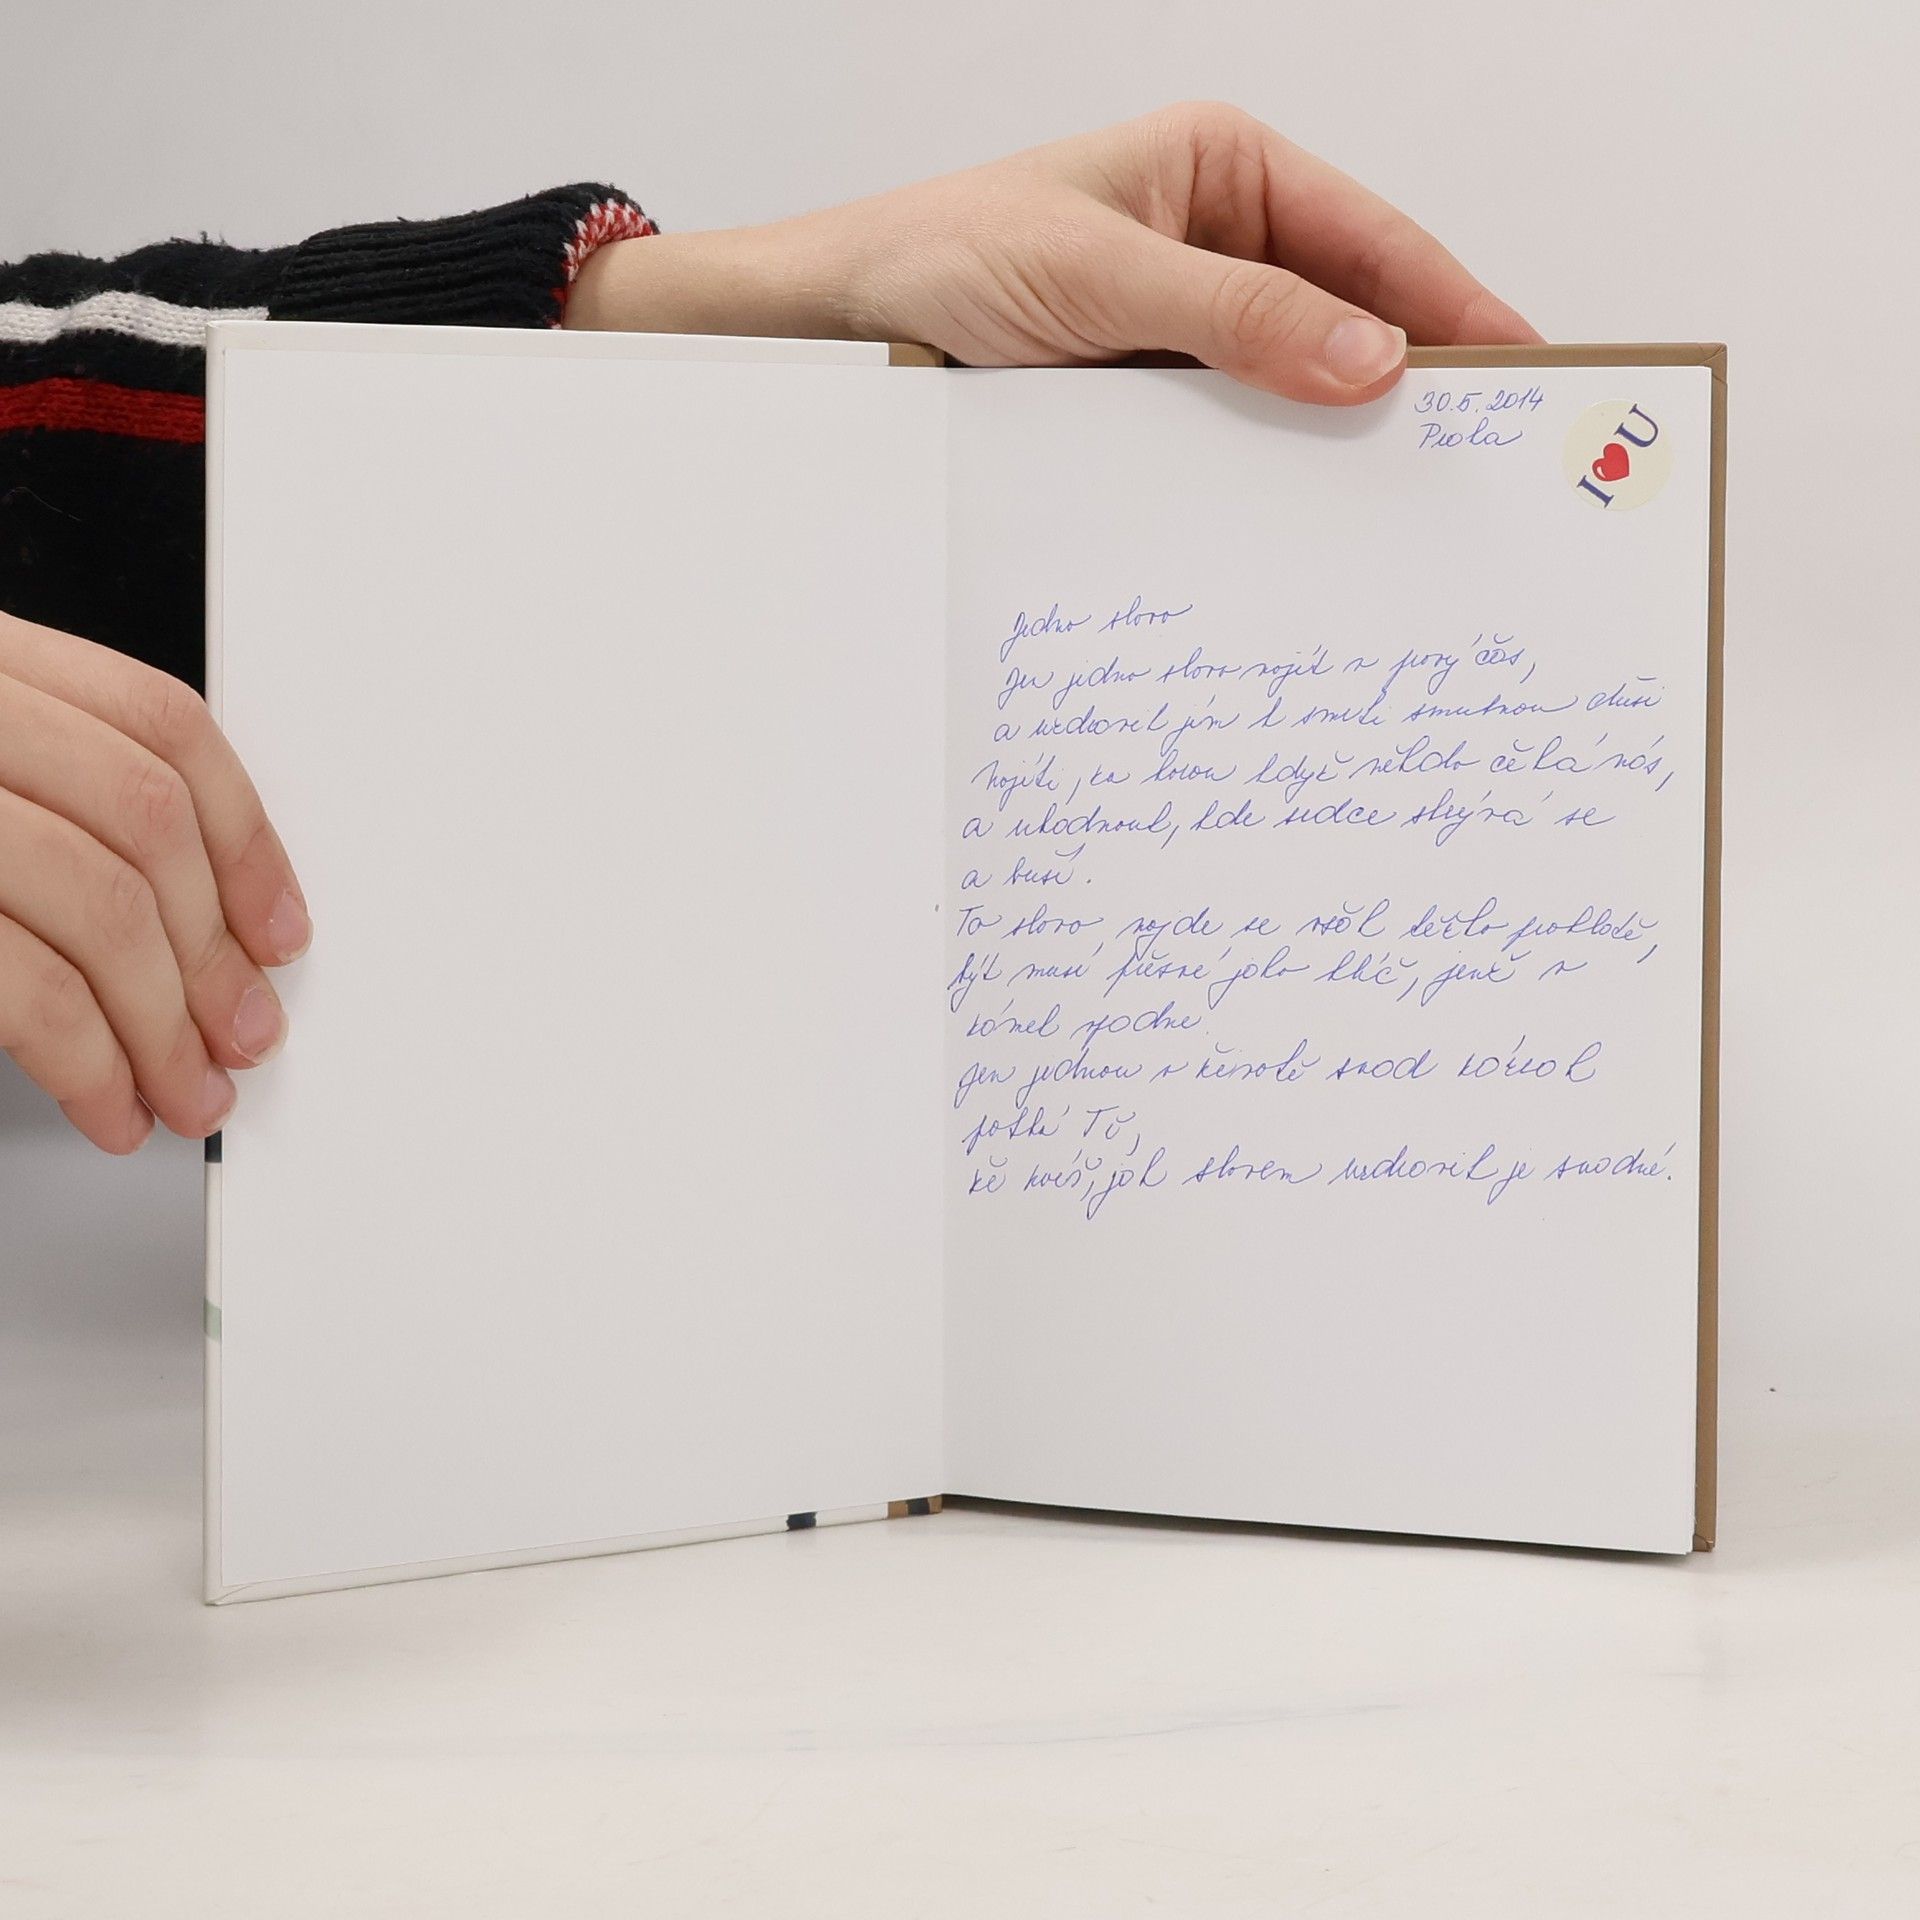 30.5.2014
Praha
I ♥ U
Jedno slovo
Jen jedno slovo najít v pravý čas,
a uzdravit jím k smrti smutnou duši
Najíti, za horou když někdo čeká nás,
a uhodnout, kde srdce skrývá se
a buší.
To slovo najde se však těžko pokladě,
být musí přesné jako klíč, jenž v
zámek zapadne.
Jen jednou v životě snad zázrak
potká Tě,
že zvíš, jak slovem uzdravit je snadné.